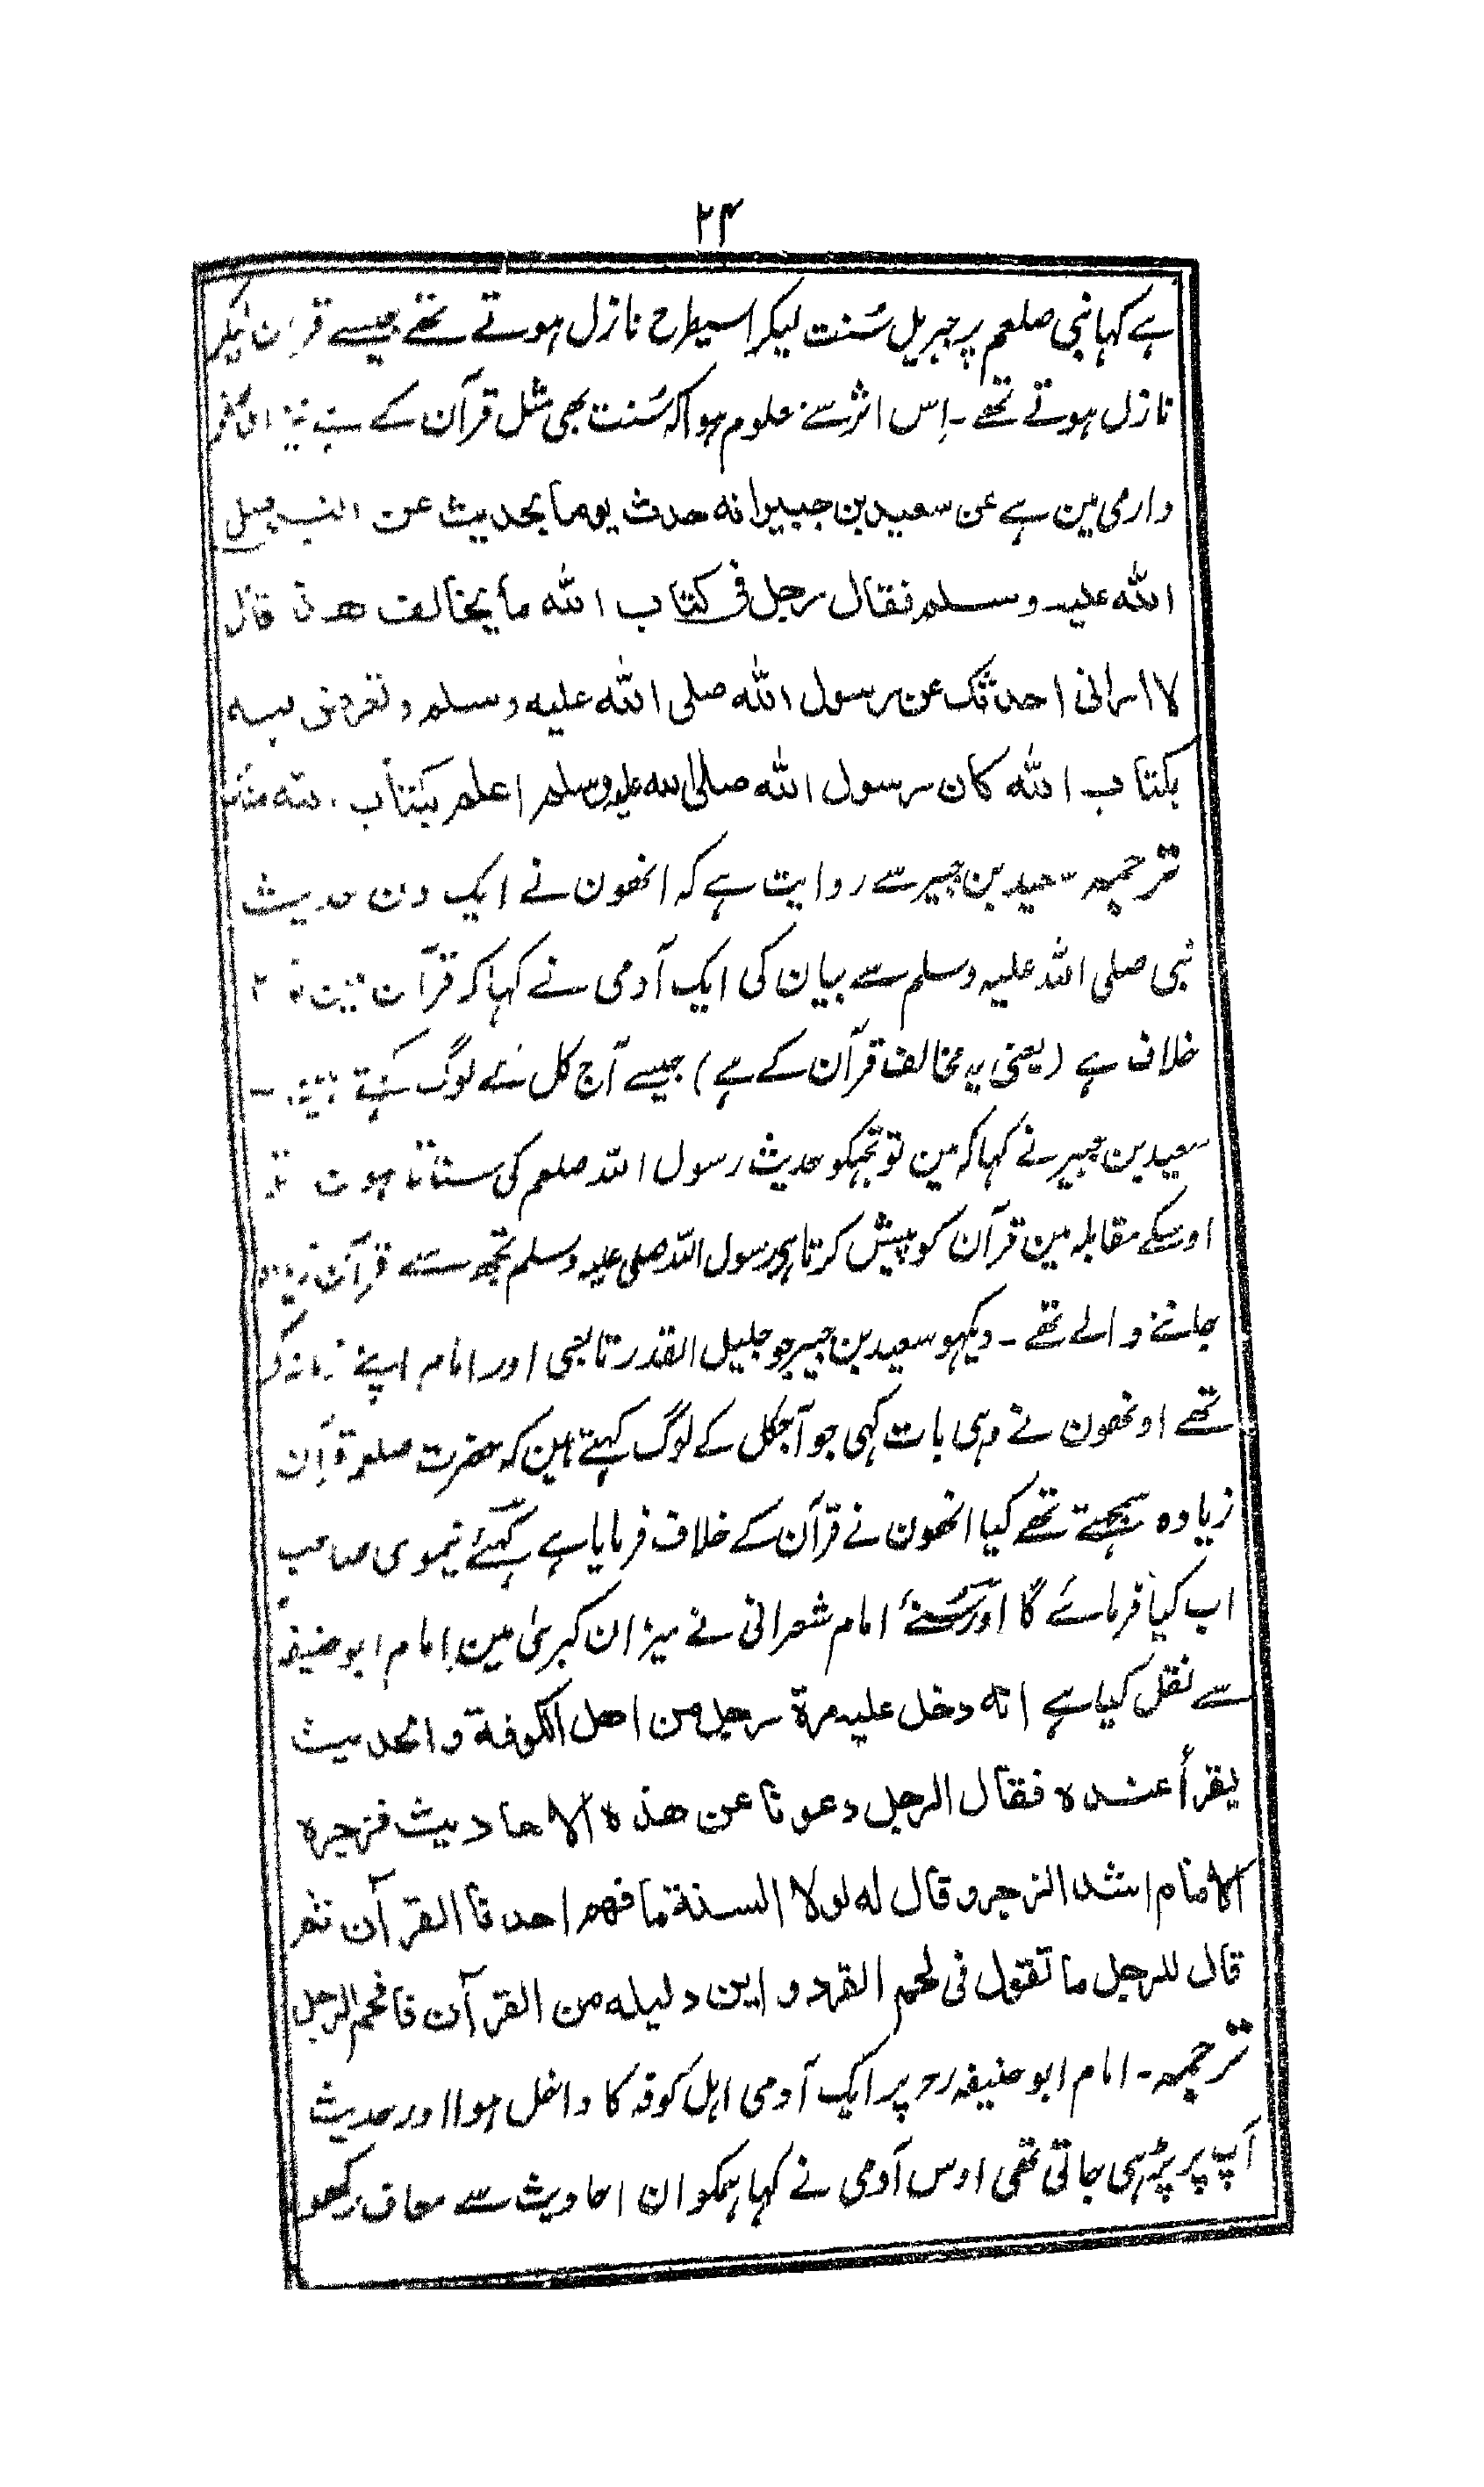 ۲۴
ہے کہا نبی صلعم پر جبریل سُنت لیکر اسیطرح نازل ہوتے تھے جیسے قرآن لیکر
نازل ہوتے تھے ۔ اِس اثر سے معلوم ہوا کہ سُنت بھی مثل قرآن کے ہے نیز
دارمی مین ہے عن سعید بن جبیر انہ حدث یوما بحدیث عن النبی صلی
اللہ علیہ وسلم فقال رجل فی کتاب اللہ ما یخالف ھذا قال
لا ارانی احدثک عن رسول اللہ صلی اللہ علیہ وسلم وتعرض فیہ
بکتاب اللہ کان رسول اللہ صلی اللہ علیہ وسلم اعلم بکتاب اللہ منک
ترجمہ سعید بن جبیر سے روایت ہے کہ انھون نے ایک دن حدیث
نبی صلی اللہ علیہ وسلم سے بیان کی ایک آدمی نے کہا کہ قرآن مین
خلاف ہے (یعنی یہ مخالف قرآن کے ہے) جیسے آج کل نئے لوگ کہتے ہین ۔
سعید بن جبیر نے کہا کہ مین تو تجہکو حدیث رسول اللہ صلعم کی سناتا ہون تو
اوسکے مقابلہ مین قرآن کو پیش کرتا ہے رسول اللہ صلی علیہ وسلم تجھ سے قرآن زیادہ
جاننے والے تھے ۔ دیکہو سعید بن جبیر جو جلیل القدر تابعی اور امام اپنے زمانہ کے
تھے اونھون نے وہی بات کہی جو آجکل کے لوگ کہتے ہین کہ حضرت صلعم قرآن
زیادہ سمجہتے تھے کیا انھون نے قرآن کے خلاف فرمایا ہے کہئے نیموی صاحب
اب کیا فرمائے گا اور سُنئے امام شعرانی نے میزان کبریٰ مین امام ابو حنیفہ
سے نقل کیا ہے انہ دخل علیہ مرۃ رجل من اھل الکوفۃ والحدیث
یقرأ عندہ فقال الرجل دعونا عن ھذہ الاحادیث فزجرہ
الامام اشد الزجر و قال لہ لولا السنۃ ما فھم احدنا القرآن ثم
قال للرجل ما تقول فی لحم القرد و این دلیلہ من القرآن فافحم الرجل
ترجمہ ۔ امام ابو حنیفہ رح پر ایک آدمی اہل کوفہ کا داخل ہوا اور حدیث
آپ پر پڑہی جاتی تھی اوس آدمی نے کہا ہمکو ان احادیث سے معاف رکھو